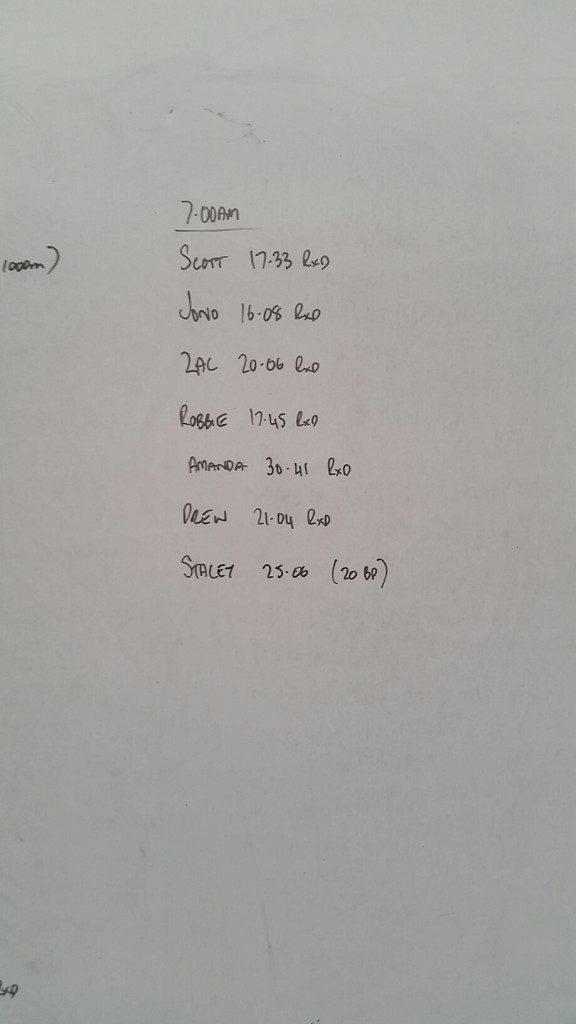 7.00AM
100am)
SCOTT 17.33 RxD
JONO 16.08 RxD
ZAC 20.06 RxD
ROBBIE 17.45 RxD
AMANDA 30.41 RxD
DREW 21.04 RxD
STACEY 25.06 (20 BP)